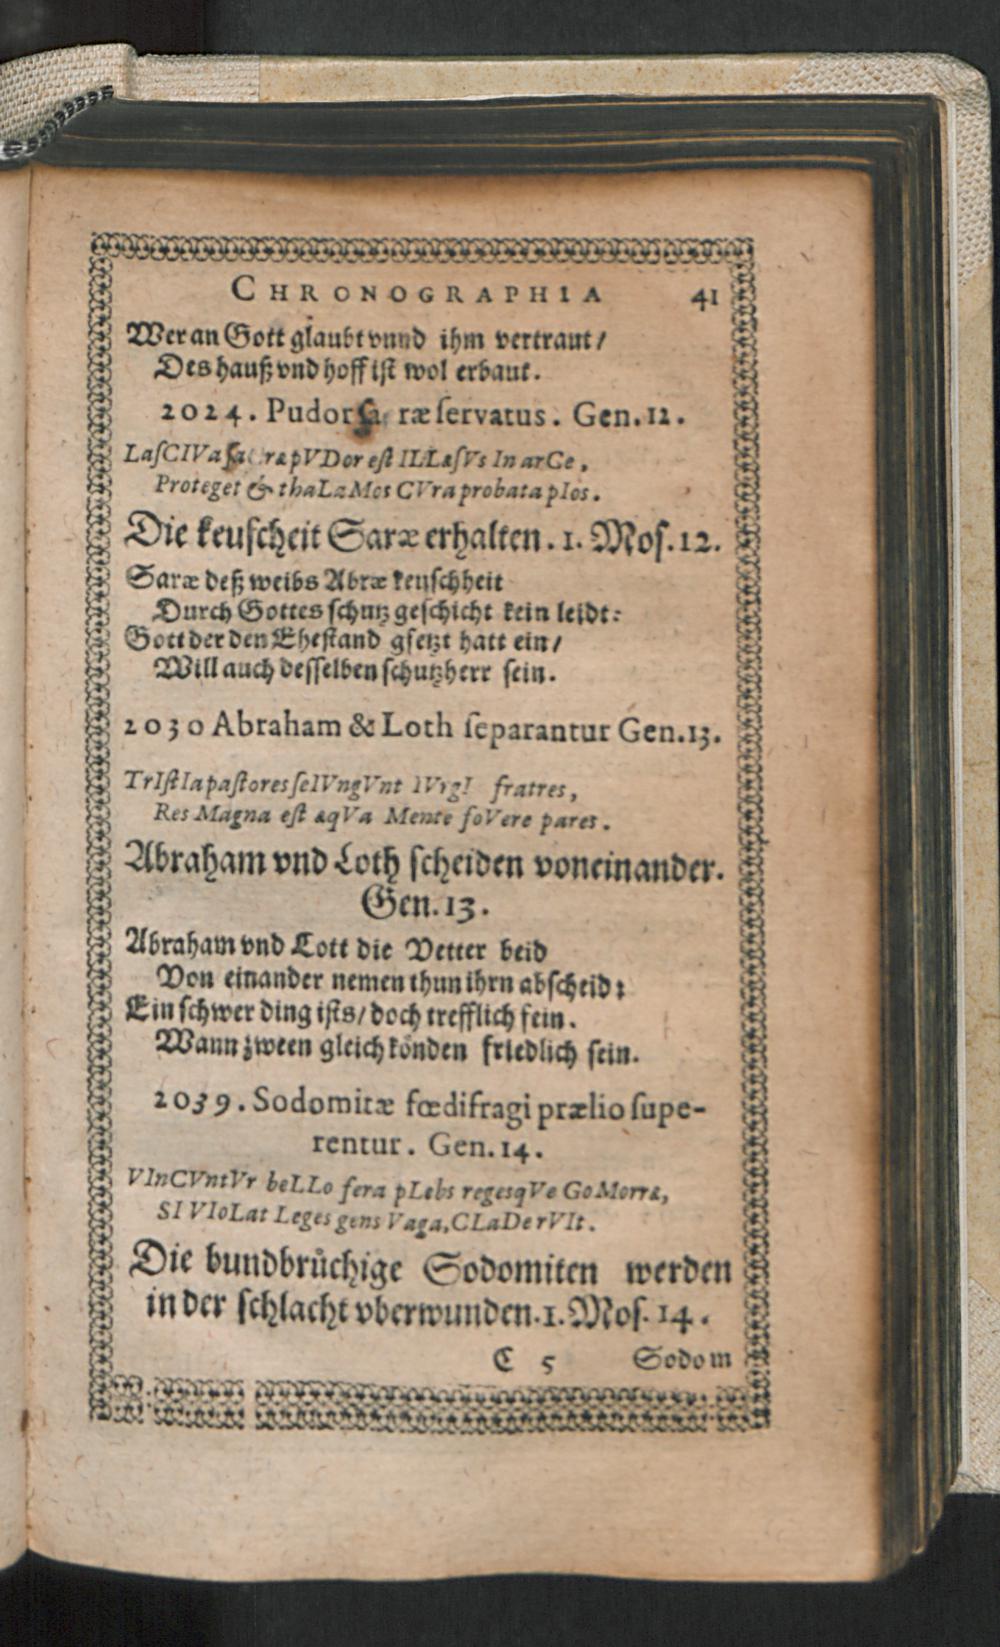 CHRONOGRAPHIA 41
Wer an Gott glaubt vnnd ihm vertraut/
Des hauß vnd hoff ist wol erbaut.
2024. Pudor ræſervatus. Gen. 12.
LaſCIVa pVDor eſt ILLæſVs In arCe,
Proteget & thaLaMos CVra probata pIos.
Die keuſcheit Saræ erhalten. 1. Moſ. 12.
Saræ deß weibs Abræ keuſchheit
Durch Gottes ſchutz geſchicht kein leidt:
Gott der den Eheſtand gſetzt hatt ein/
Will auch deſſelben ſchutzherr ſein.
2030 Abraham & Loth ſeparantur Gen. 13.
TrIſtIa paſtores ſeIVngVnt IVrgI fratres,
Res Magna eſt æqVa Mente foVere pares.
Abraham vnd Loth ſcheiden voneinander.
Gen. 13.
Abraham vnd Lott die Vetter beid
Von einander nemen thun ihrn abſcheid:
Ein ſchwer ding iſts/ doch trefflich fein.
Wann zween gleich koͤnden friedlich ſein.
2039. Sodomitæ fœdifragi prælio ſupe-
rentur. Gen. 14.
VInCVntVr beLLo fera pLebs regesqVe GoMorræ,
SI VIoLat Leges gens Vaga, CLaDe rVIt.
Die bundbruͤchige Sodomiten werden
in der ſchlacht vberwunden. 1. Moſ. 14.
C 5 Sodom